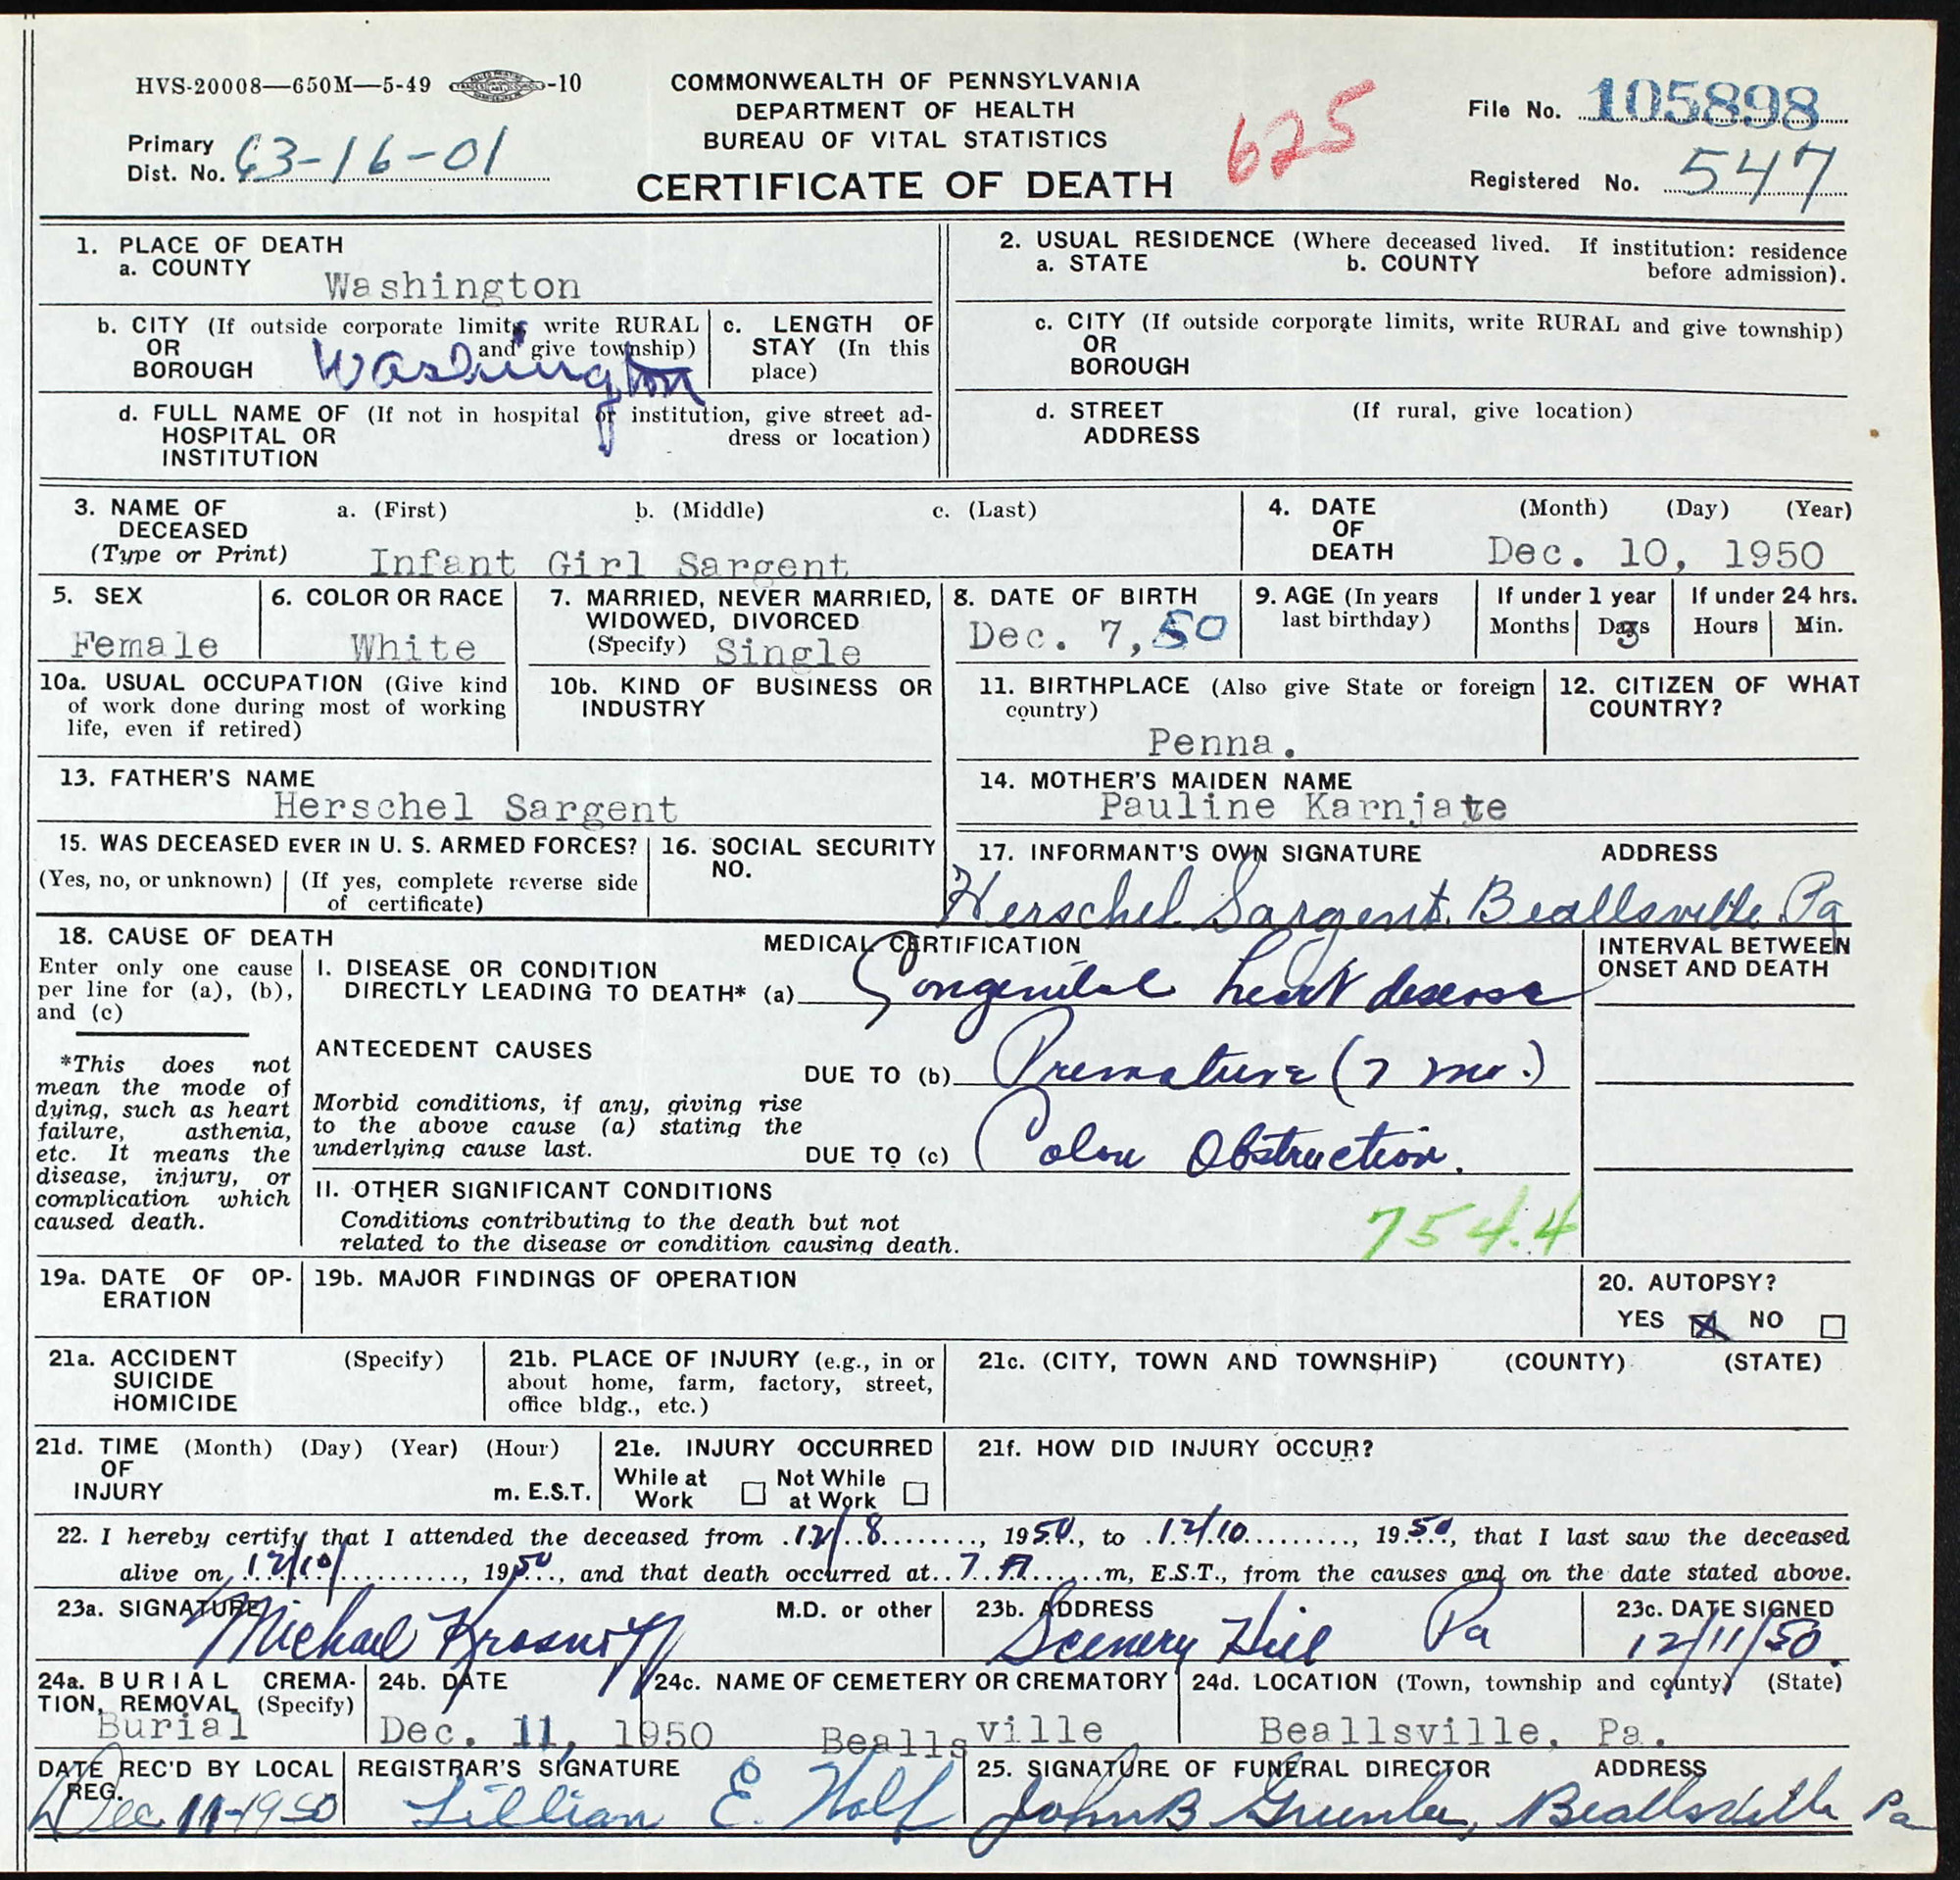 HVS-20008—650M—5-49 -10
COMMONWEALTH OF PENNSYLVANIA
DEPARTMENT OF HEALTH
BUREAU OF VITAL STATISTICS
CERTIFICATE OF DEATH
625
File No. 105898
Primary
Dist. No. 63-16-01
Registered No. 547
1. PLACE OF DEATH
a. COUNTY
Washington
b. CITY (If outside corporate limits, write RURAL
OR and give township)
BOROUGH Washington
c. LENGTH OF
STAY (In this
place)
d. FULL NAME OF (If not in hospital or institution, give street ad-
HOSPITAL OR dress or location)
INSTITUTION
2. USUAL RESIDENCE (Where deceased lived. If institution: residence
a. STATE b. COUNTY before admission).
c. CITY (If outside corporate limits, write RURAL and give township)
OR
BOROUGH
d. STREET (If rural, give location)
ADDRESS
3. NAME OF a. (First) b. (Middle) c. (Last)
DECEASED
(Type or Print) Infant Girl Sargent
4. DATE (Month) (Day) (Year)
OF
DEATH Dec. 10, 1950
5. SEX
Female
6. COLOR OR RACE
White
7. MARRIED, NEVER MARRIED,
WIDOWED, DIVORCED
(Specify) Single
8. DATE OF BIRTH
Dec. 7, 50
9. AGE (In years
last birthday)
If under 1 year
Months Days
3
If under 24 hrs.
Hours Min.
10a. USUAL OCCUPATION (Give kind
of work done during most of working
life, even if retired)
10b. KIND OF BUSINESS OR
INDUSTRY
11. BIRTHPLACE (Also give State or foreign
country)
Penna.
12. CITIZEN OF WHAT
COUNTRY?
13. FATHER'S NAME
Herschel Sargent
14. MOTHER'S MAIDEN NAME
Pauline Karnjate
15. WAS DECEASED EVER IN U. S. ARMED FORCES?
(Yes, no, or unknown) (If yes, complete reverse side
of certificate)
16. SOCIAL SECURITY
NO.
17. INFORMANT'S OWN SIGNATURE ADDRESS
Herschel Sargent. Beallsville Pa
18. CAUSE OF DEATH
Enter only one cause
per line for (a), (b),
and (c)
*This does not
mean the mode of
dying, such as heart
failure, asthenia,
etc. It means the
disease, injury, or
complication which
caused death.
MEDICAL CERTIFICATION
I. DISEASE OR CONDITION
DIRECTLY LEADING TO DEATH* (a) Congenital heart disease
ANTECEDENT CAUSES
DUE TO (b) Premature (7 mo.)
Morbid conditions, if any, giving rise
to the above cause (a) stating the
underlying cause last.
DUE TO (c) Colon Obstruction.
II. OTHER SIGNIFICANT CONDITIONS
Conditions contributing to the death but not
related to the disease or condition causing death.
754.4
INTERVAL BETWEEN
ONSET AND DEATH
19a. DATE OF OP-
ERATION
19b. MAJOR FINDINGS OF OPERATION
20. AUTOPSY?
YES X NO
21a. ACCIDENT (Specify)
SUICIDE
HOMICIDE
21b. PLACE OF INJURY (e.g., in or
about home, farm, factory, street,
office bldg., etc.)
21c. (CITY, TOWN AND TOWNSHIP) (COUNTY) (STATE)
21d. TIME (Month) (Day) (Year) (Hour)
OF
INJURY m. E.S.T.
21e. INJURY OCCURRED
While at Not While
Work at Work
21f. HOW DID INJURY OCCUR?
22. I hereby certify that I attended the deceased from 12/8, 1950, to 12/10, 1950, that I last saw the deceased
alive on 12/10, 1950, and that death occurred at 7 A m, E.S.T., from the causes and on the date stated above.
23a. SIGNATURE M.D. or other
Michael Krosnoff
23b. ADDRESS
Scenery Hill Pa
23c. DATE SIGNED
12/11/50.
24a. BURIAL CREMA-
TION, REMOVAL (Specify)
Burial
24b. DATE
Dec. 11, 1950
24c. NAME OF CEMETERY OR CREMATORY
Beallsville
24d. LOCATION (Town, township and county) (State)
Beallsville, Pa.
DATE REC'D BY LOCAL
REG.
Dec 11-1950
REGISTRAR'S SIGNATURE
Lillian E.
25. SIGNATURE OF FUNERAL DIRECTOR ADDRESS
John B Beallsville Pa